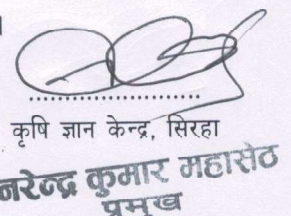 कृषि ज्ञान केन्द्र, सिरहा
नरेन्द्र कुमार महासेठ
प्रमुख